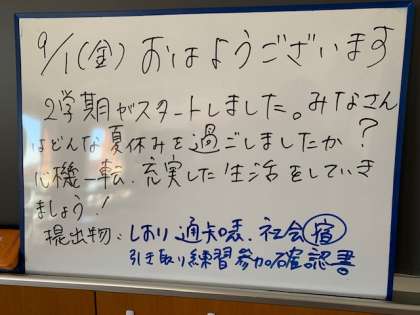 9/1(金) おはようございます
2学期がスタートしました。みなさん
はどんな夏休みを過ごしましたか?
心機一転、充実した生活をしていき
ましょう!
提出物:しおり 通知表、社会宿
引き取り練習参加確認書